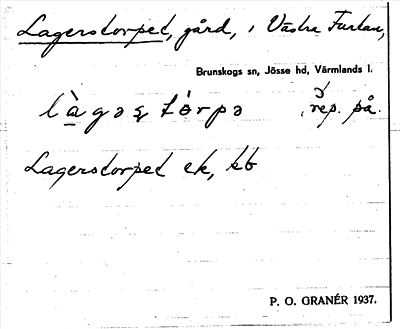 Lagerstorpet, gård, i Västra Furtan,
Brunskogs sn, Jösse hd, Värmlands l.
là̱gəʂtò̱rpə , rep. på.
Lagerstorpet ek, kb
P. O. GRANÉR 1937.